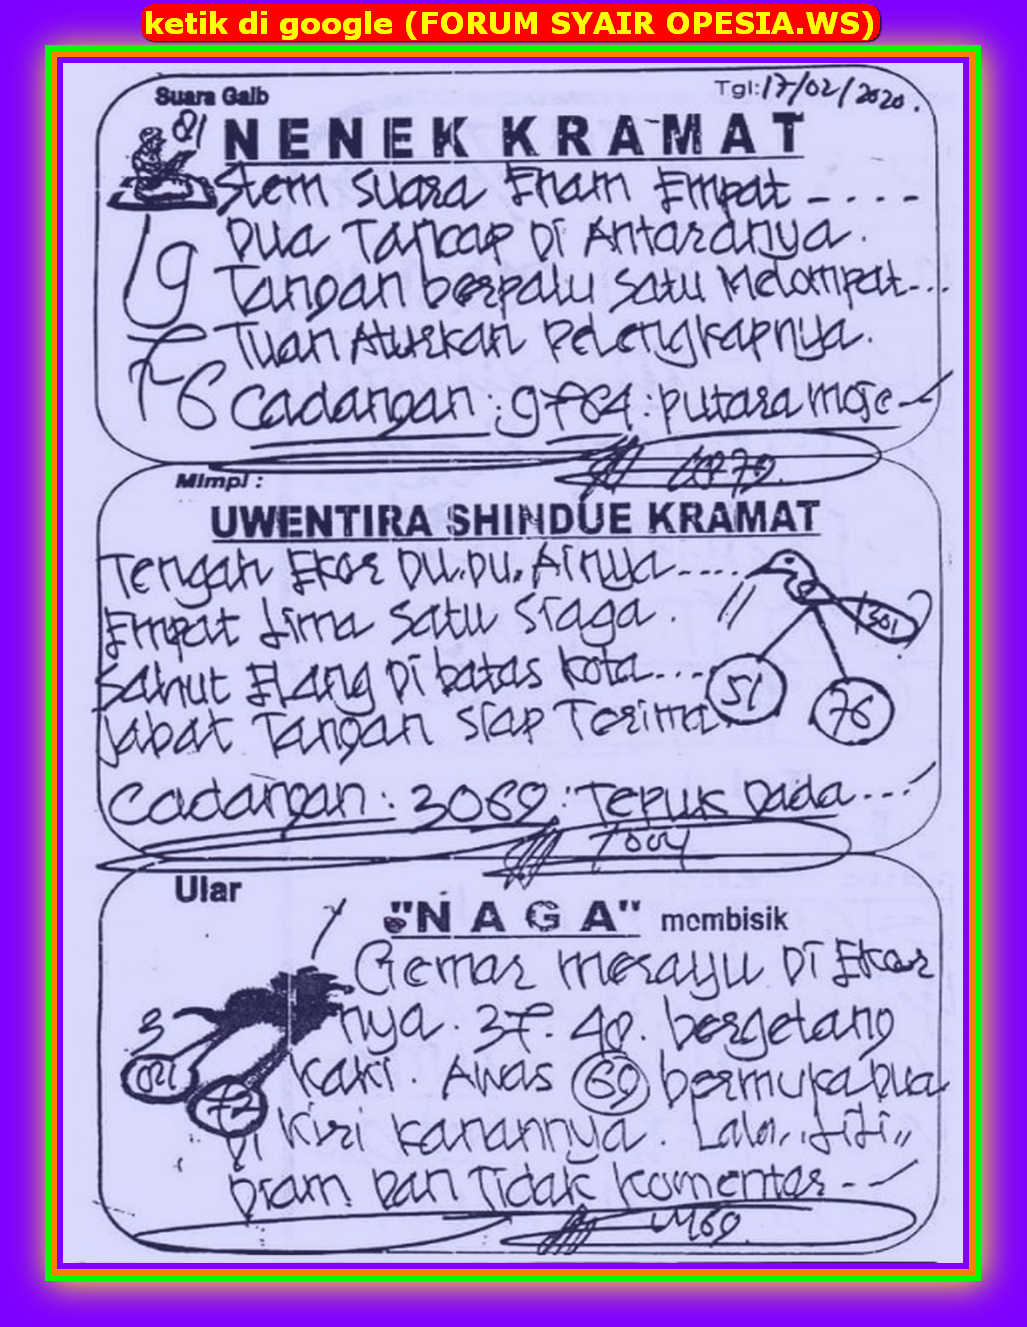 ketik di google (FORUM SYAIR OPESIA.WS)
Suara Gaib
Tgl: 17/02/2020.
NENEK KRAMAT
Stem Suara Enam Empat - . . . -
Dua Tancap Di Antaranya.
Tangan berpalu satu Melompat...
Tuan Aturkan Pelengkapnya.
76
Cadangan : 9764 : putara moje
Mimpi :
UWENTIRA SHINDUE KRAMAT
Tengah Ekor Du.Du. Airnya....
Empat Lima Satu Siaga.
Sahut Elang Di batas kota...
Jabat Tangan Siap Terima.
11
1301
51
76
Cadangan : 3069 : Tepuk Dada...
7004
Ular
"NAGA" membisik
Gemar merayu Di Ekor
nya. 37. 40. bergetang
3
021
72
kaki. Awas 69 bermuka Dua
Di Kiri kanannya. Lalu,, Liti,,
Diam Dan Tidak komentar - -